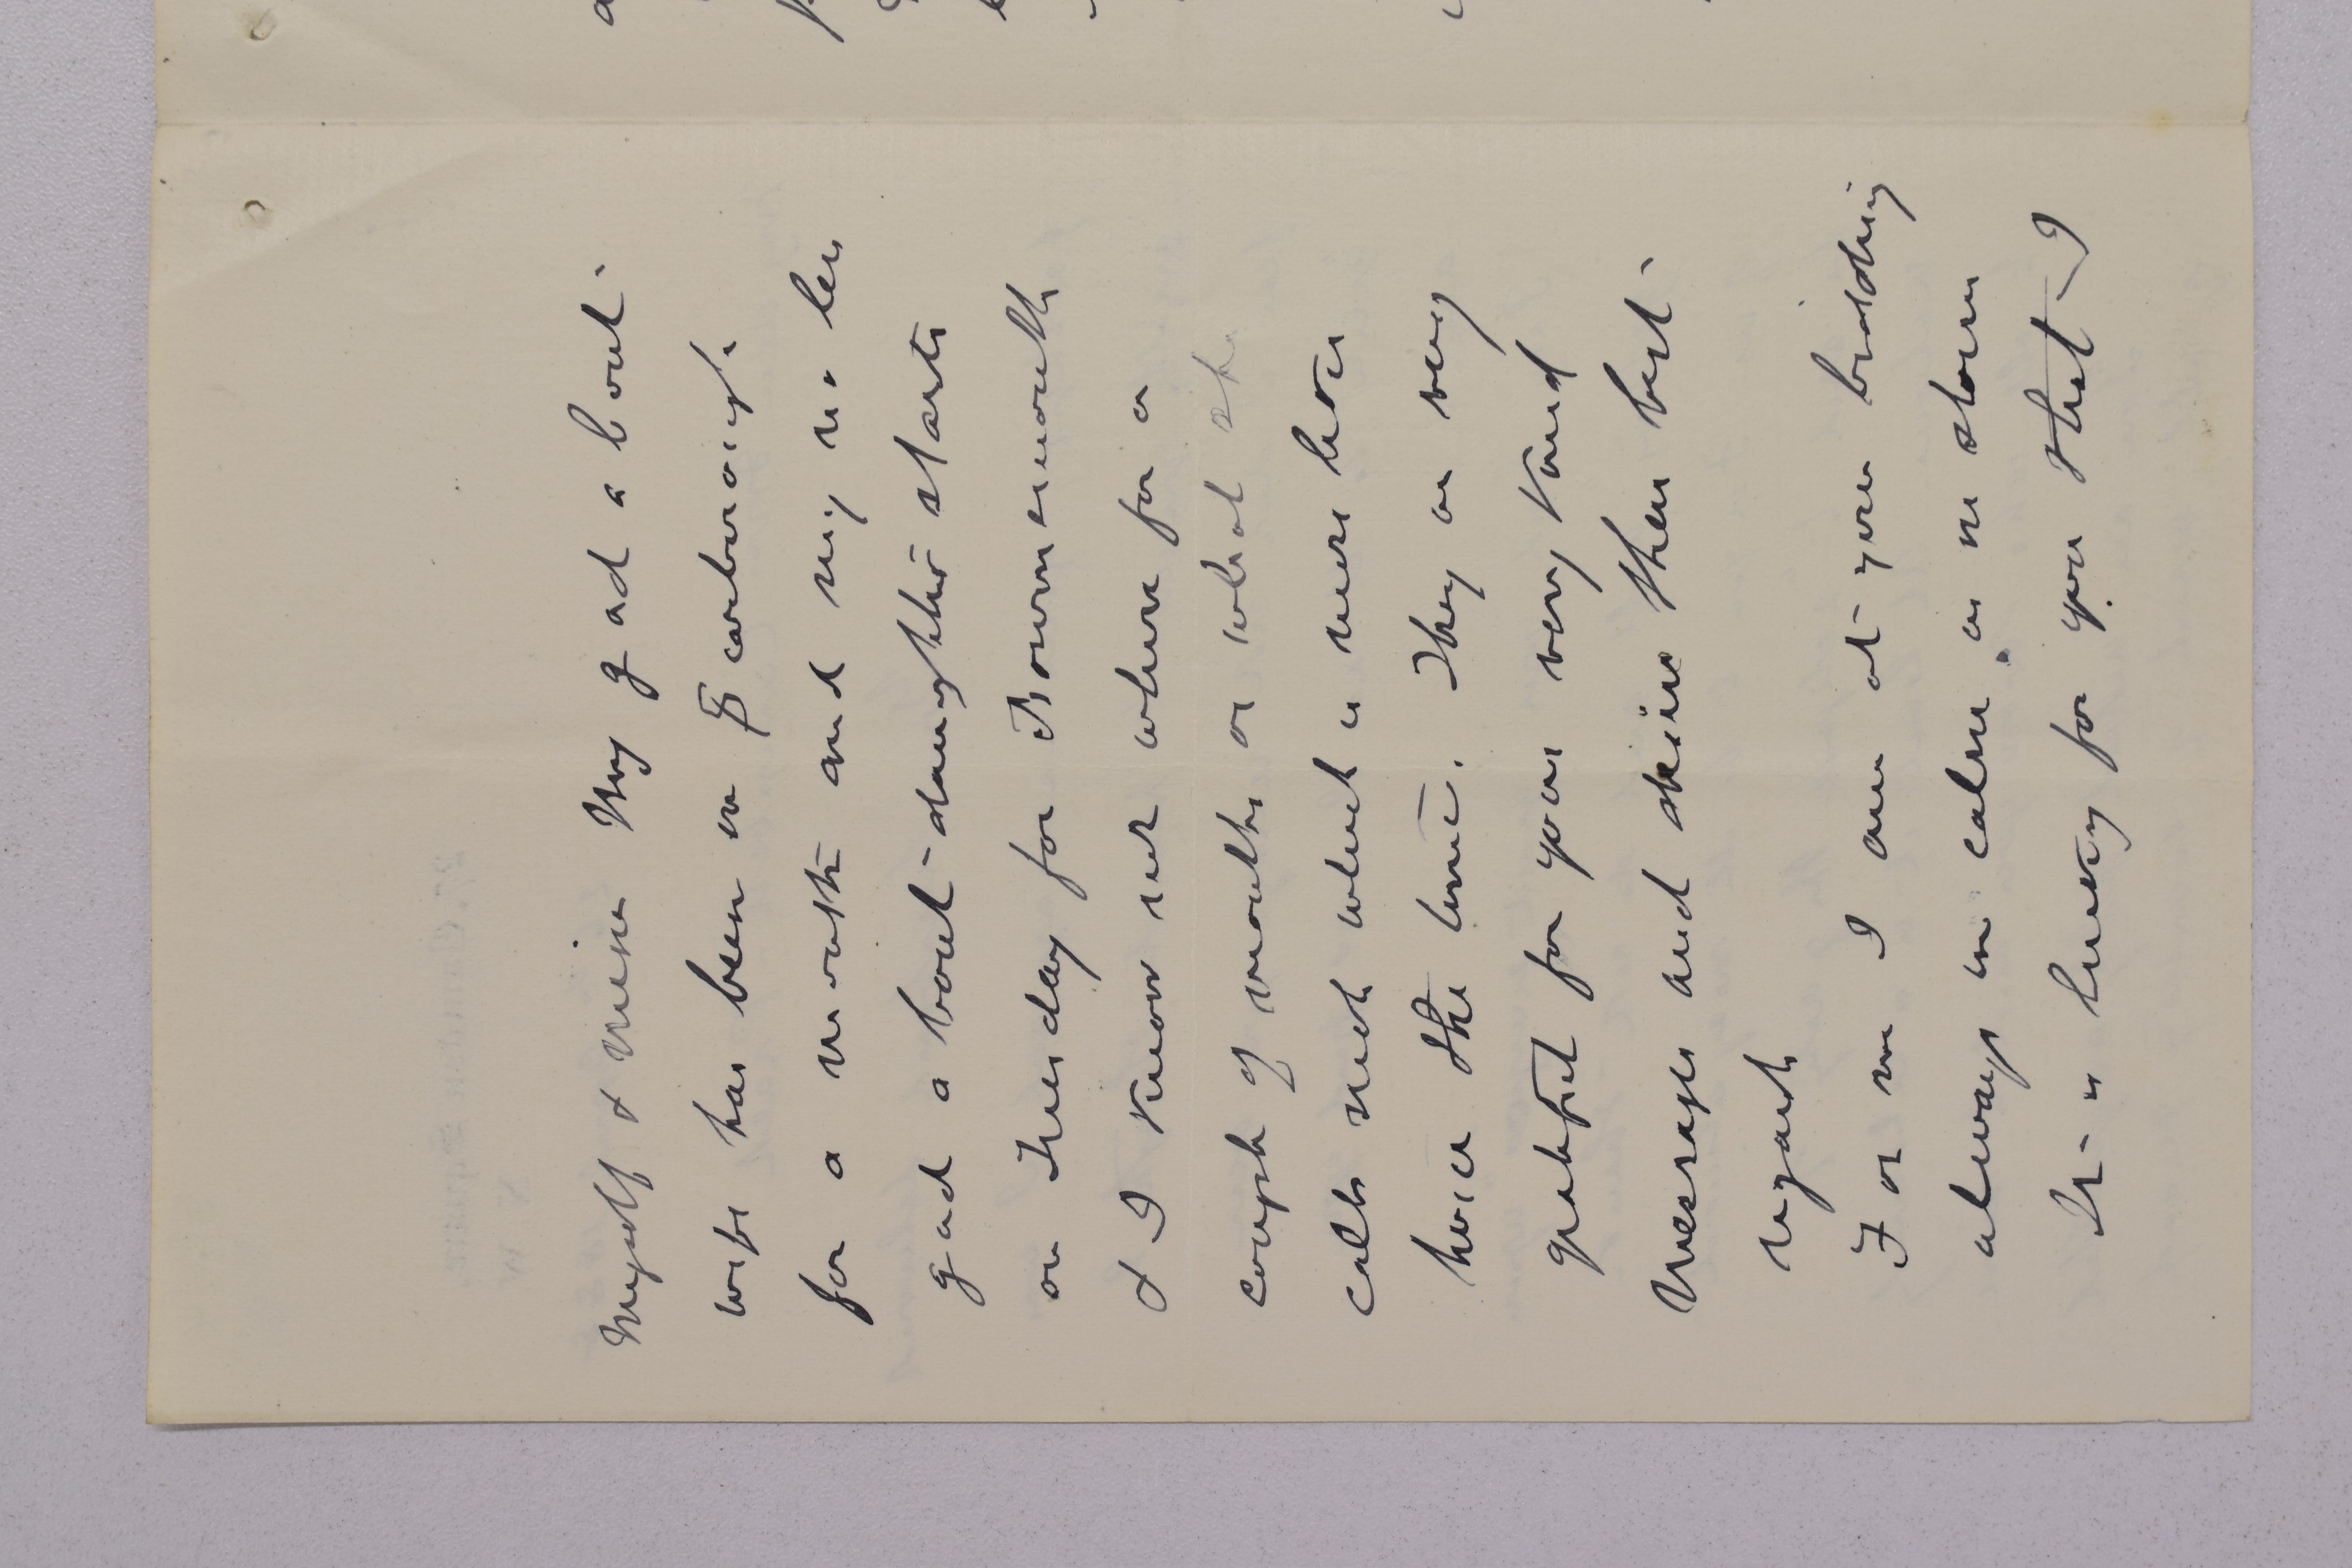 Myself & mine My gad about
wife has been in Scarborough
for a month and my no less
gad about daughter starts
on Tuesday for Bournemouth
& I know not where for a
couple of months or what she
calls such which is more hours
twice the time. They are very
grateful for your very kind
messages and desire their best
regards
For me I am at your bidding
always in calm as in storm
It is lucky for you that I